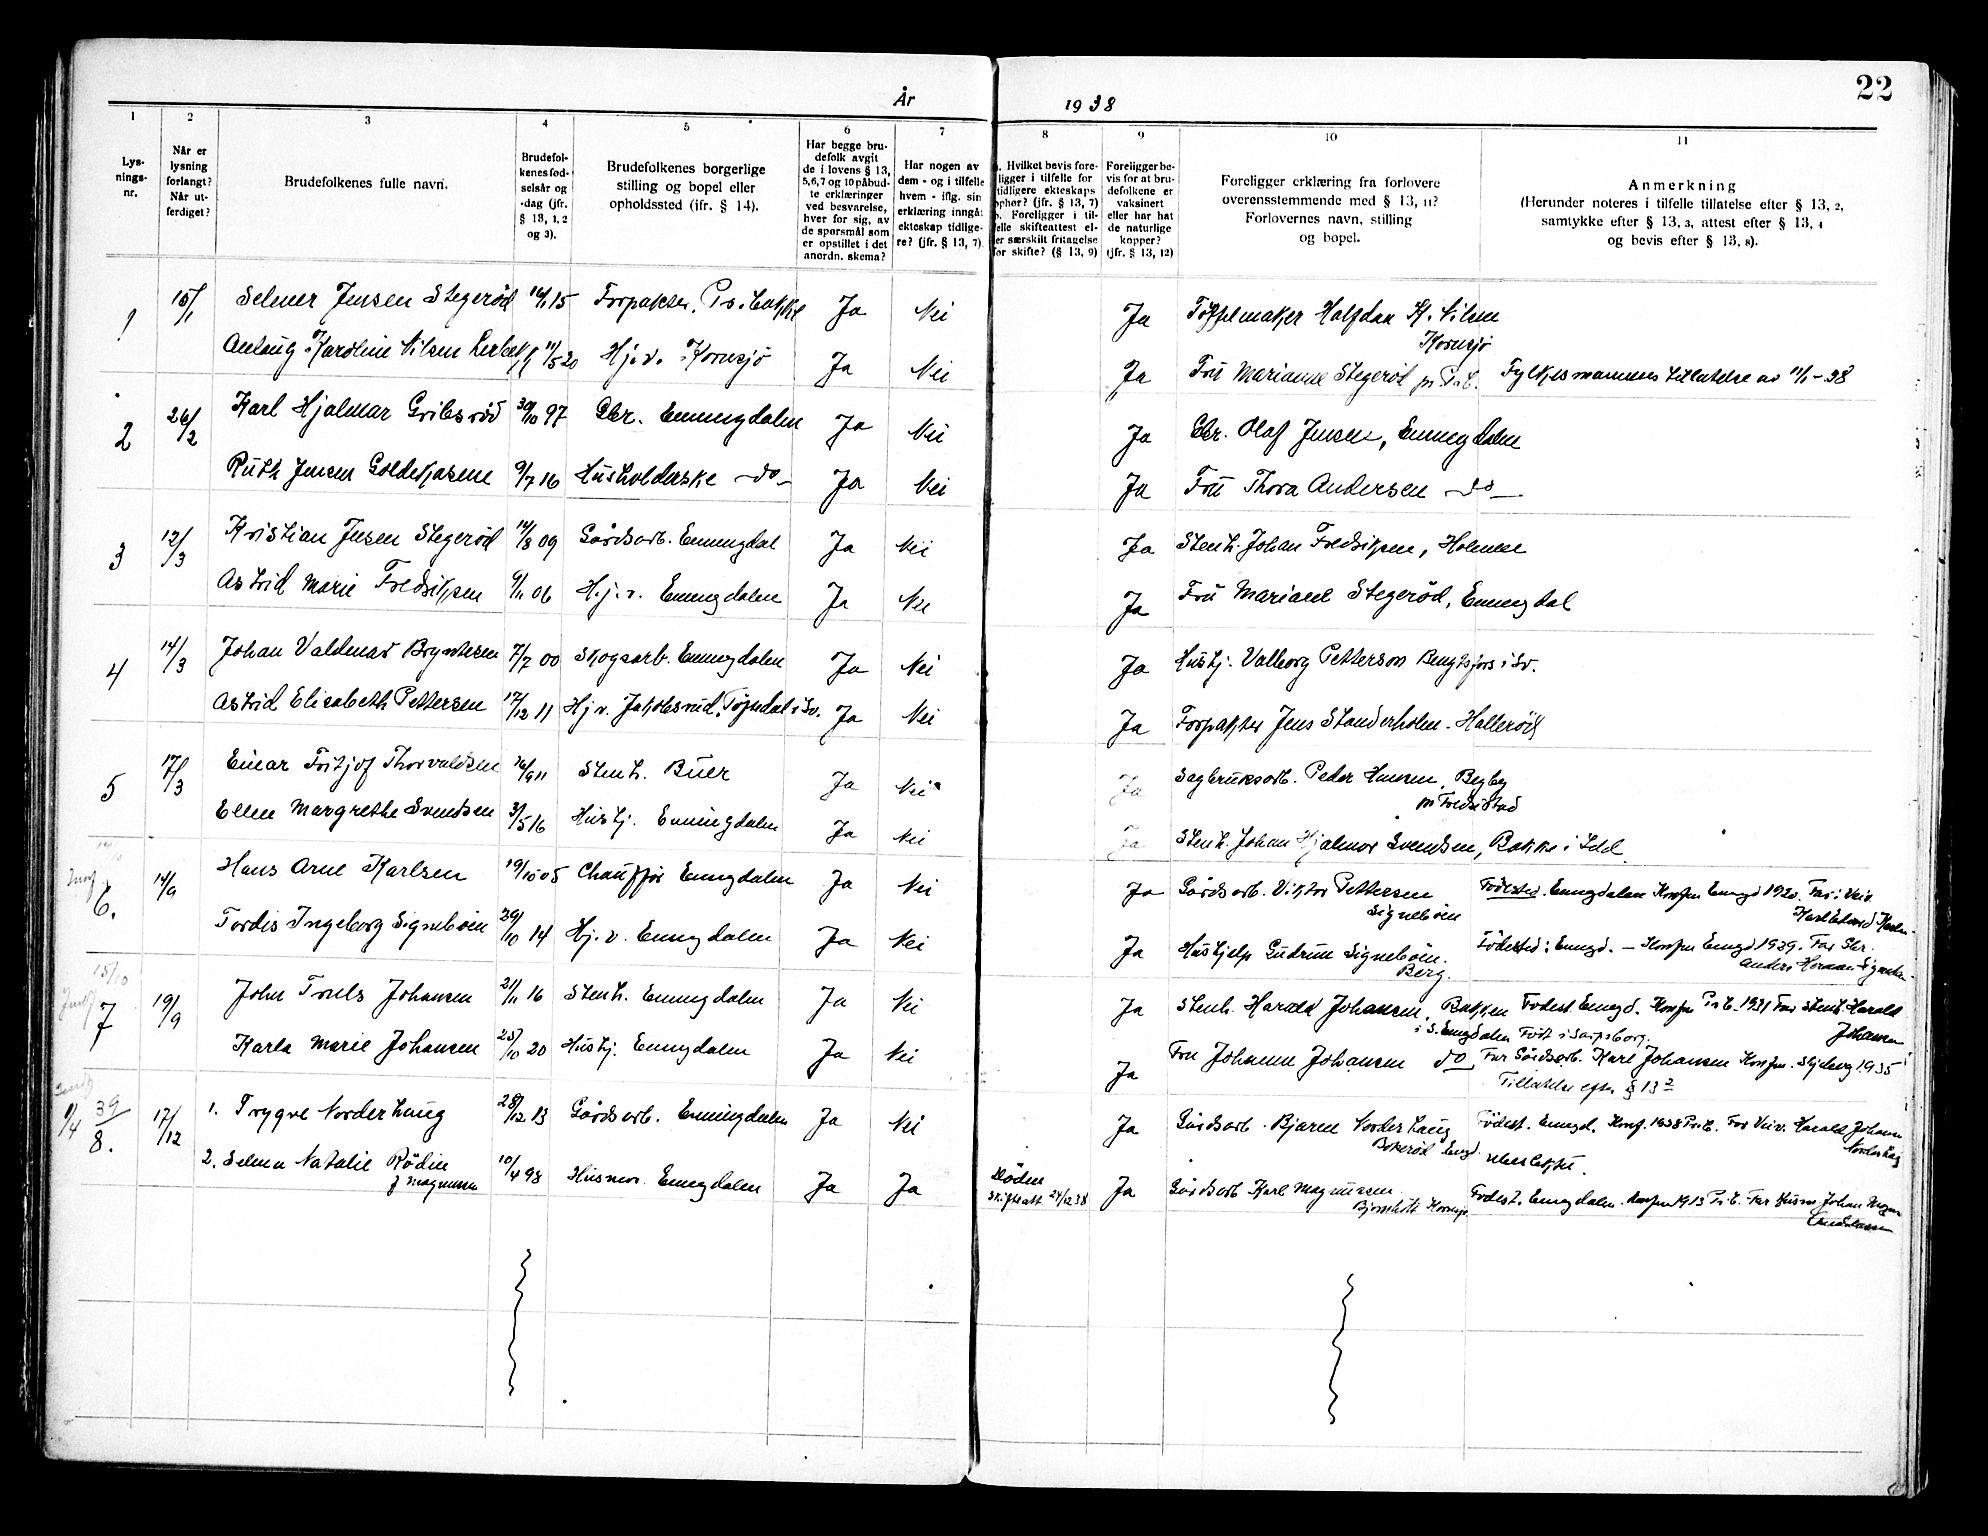 22
År 1938
1 2 3 4 5 6 7 8 9 10 11
Lys-
nings-
nr.
Når er
lysning
forlangt?
Når ut-
ferdiget?
Brudefolkenes fulle navn.
Brudefol-
kenes fød-
selsår og
-dag (jfr.
§ 13, 1, 2
og 3).
Brudefolkenes borgerlige
stilling og bopel eller
opholdssted (ifr. § 14).
Har begge bru-
defolk avgit
de i lovens § 13,
5,6,7 og 10 påbud-
te erklæringer
ved besvarelse,
hver for sig, av
de spørsmål som
er opstillet i det
anordn. skema?
Har nogen av
dem - og i tilfelle
hvem - iflg. sin
erklæring inngåt
ekteskap tidlige-
re? (jfr. § 13, 7).
Hvilket bevis fore-
ligger i tilfelle for
tidligere ekteskaps
ophør? (jfr. § 13, 7)
b. Foreligger i til-
felle skifteattest el-
ler særskilt fritagelse
for skifte? (§ 13, 9)
Foreligger be-
vis for at bru-
defolkene er
vaksinert
eller har hat
de naturlige
kopper?
(jfr. § 13, 12)
Foreligger erklæring fra forlovere
overensstemmende med § 13, 11?
Forlovernes navn, stilling
og bopel.
Anmerkning
(Herunder noteres i tilfelle tillatelse efter § 13, 2,
samtykke efter § 13, 3, attest efter § 13, 4
og bevis efter § 13, 8).
1 15/1 Selmer Jensen Stegerød 15 Forpakter, Pr. bakke Ja Nei Ja Tøffelmaker Halfdan H. Nilsen
Kornsjø
Anlaug Karoline Nilsen 11/5 20 Hj.v. Kornsjø Ja Nei Ja Fru Marianne Stegerød Fylkesmannens tillatelse av 11/1-38
2 26/2 Karl Hjalmar Gribsrød 30/10 97 Gbr. Enningdalen Ja Nei Ja Gbr. Olaf Jensen, Enningdalen
Ruth Jensen Goldekjasene 9/7 16 Husholderske -do- Ja Nei Ja Fru Thora Andersen -do-
3 12/3 Kristian Jensen Stegerød 14/8 09 Gårdsarb. Enningdal Ja Nei Ja Stenh. Johan Fredriksen, Holmen
Astrid Marie Fredriksen 9/11 06 H.j.v. Enningdalen Ja Nei Ja Fru Mariane Stegerød, Enningdal
4 14/3 Johan Valdemar Bryntesen 7/7 00 Skogsarb. Enningdalen Ja Nei Ja Hushj. Valborg Petterson Bengtsfors i Sv.
Astrid Elisabeth Pettersen 17/12 11 Hj v. Jakobsrud, Töftedal i Sv. Ja Nei Ja Forpakter Jens Standerholen - Hallerød
5 17/3 Einar Fritjof Thorvaldsen 26/9 11 Stenh. Buer Ja Nei Ja Sagbruksarb. Peder Hansen, Begby
pr Fredrikstad
Ellen Margrethe Svendsen 3/5 16 Hushj. Enningdalen Ja Nei Ja Stenh. Johan Hjalmar Svendsen, Bakke i Idd.
6. 14/9 Hans Arne Karlsen 19/10 05 Chauffør Enningdalen Ja Nei Ja Gårdsarb. Viktor Pettersen
Signebøen
Fødested. Enningdalen Konfirm Enngd 1920. Far: Veiv.
Karl Edvard Karlsen
Tordis Ingeborg Signebøen 29/10 14 Hj.v. Enningdalen Ja Nei Ja Hushjelp Gudrun Signebøen.
Berg.
Fødested: Enngd. - Konfirm Enngd 1929. Far Gbr.
Anders Herman Signebøen
15/10
7 19/9 John Truls Johansen 21/11 16 Stenh. Enningdalen Ja Nei Ja Stenh. Harald Johansen, Bakken
i S. Enngdalen
Fødest. Enngd. Konfr Pr.b. 1931 Far Stenh. Harald
Johansen
Karla Marie Johansen 25/10 20 Hushj. Enningdalen Ja Nei Ja Fru Johanne Johansen do
Født i Sarpsborg.
Far Gårdsarb. Karl Johansen Konfr. Skjeberg 1935
Tillatelse efter § 13 2
1/4 39
8. 17/12 1. Trygve Norderhaug 28/12 13 Gårdsarb. Enningdalen Ja Nei Ja Gårdsarb. Bjarne Norderhaug
Bokerød Enngd.
Fødest. Enngd. Konf. 1928 Pr.b. Far Veiv. Harald Johann
Norderhaug
2. Selma Natalie Rødin
f Magnussen
10/4 98 Husmor. Enningdalen Ja Ja Døden
Skifteatt 24/12 38 Ja Gårdsarb Karl Magnussen
Bjørnhult Kornsjø
Fødest. Enningdalen. Konfr 1913 Pr.b. Far Husm Johan Magnus